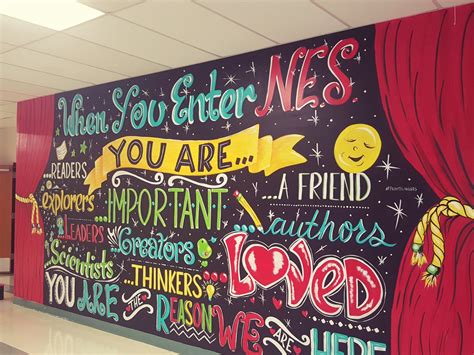 When You Enter NES.
YOU ARE...
...READERS
...A FRIEND
explorers
...IMPORTANT
...authors
LEADERS
Creators
Loved
Scientists
...THINKERS
YOU ARE THE REASON WE ARE HERE